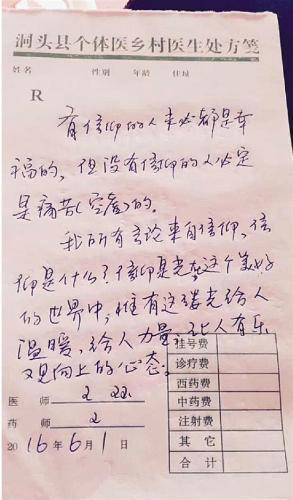 洞头县个体医乡村医生处方笺
姓名 性别 年龄 住址
R
有信仰的人未必都是幸
福的，但没有信仰的人必定
是痛苦(空虚)的.
我所有言论来自信仰，信
仰是什么？信仰是光，在这个美好
的世界中，惟有这缕光给人
温暖，给人力量，让人有乐
观向上的心态。
挂号费
诊疗费
西药费
中药费
注射费
其 它
合 计
医 师
药 师
2016年6月1日